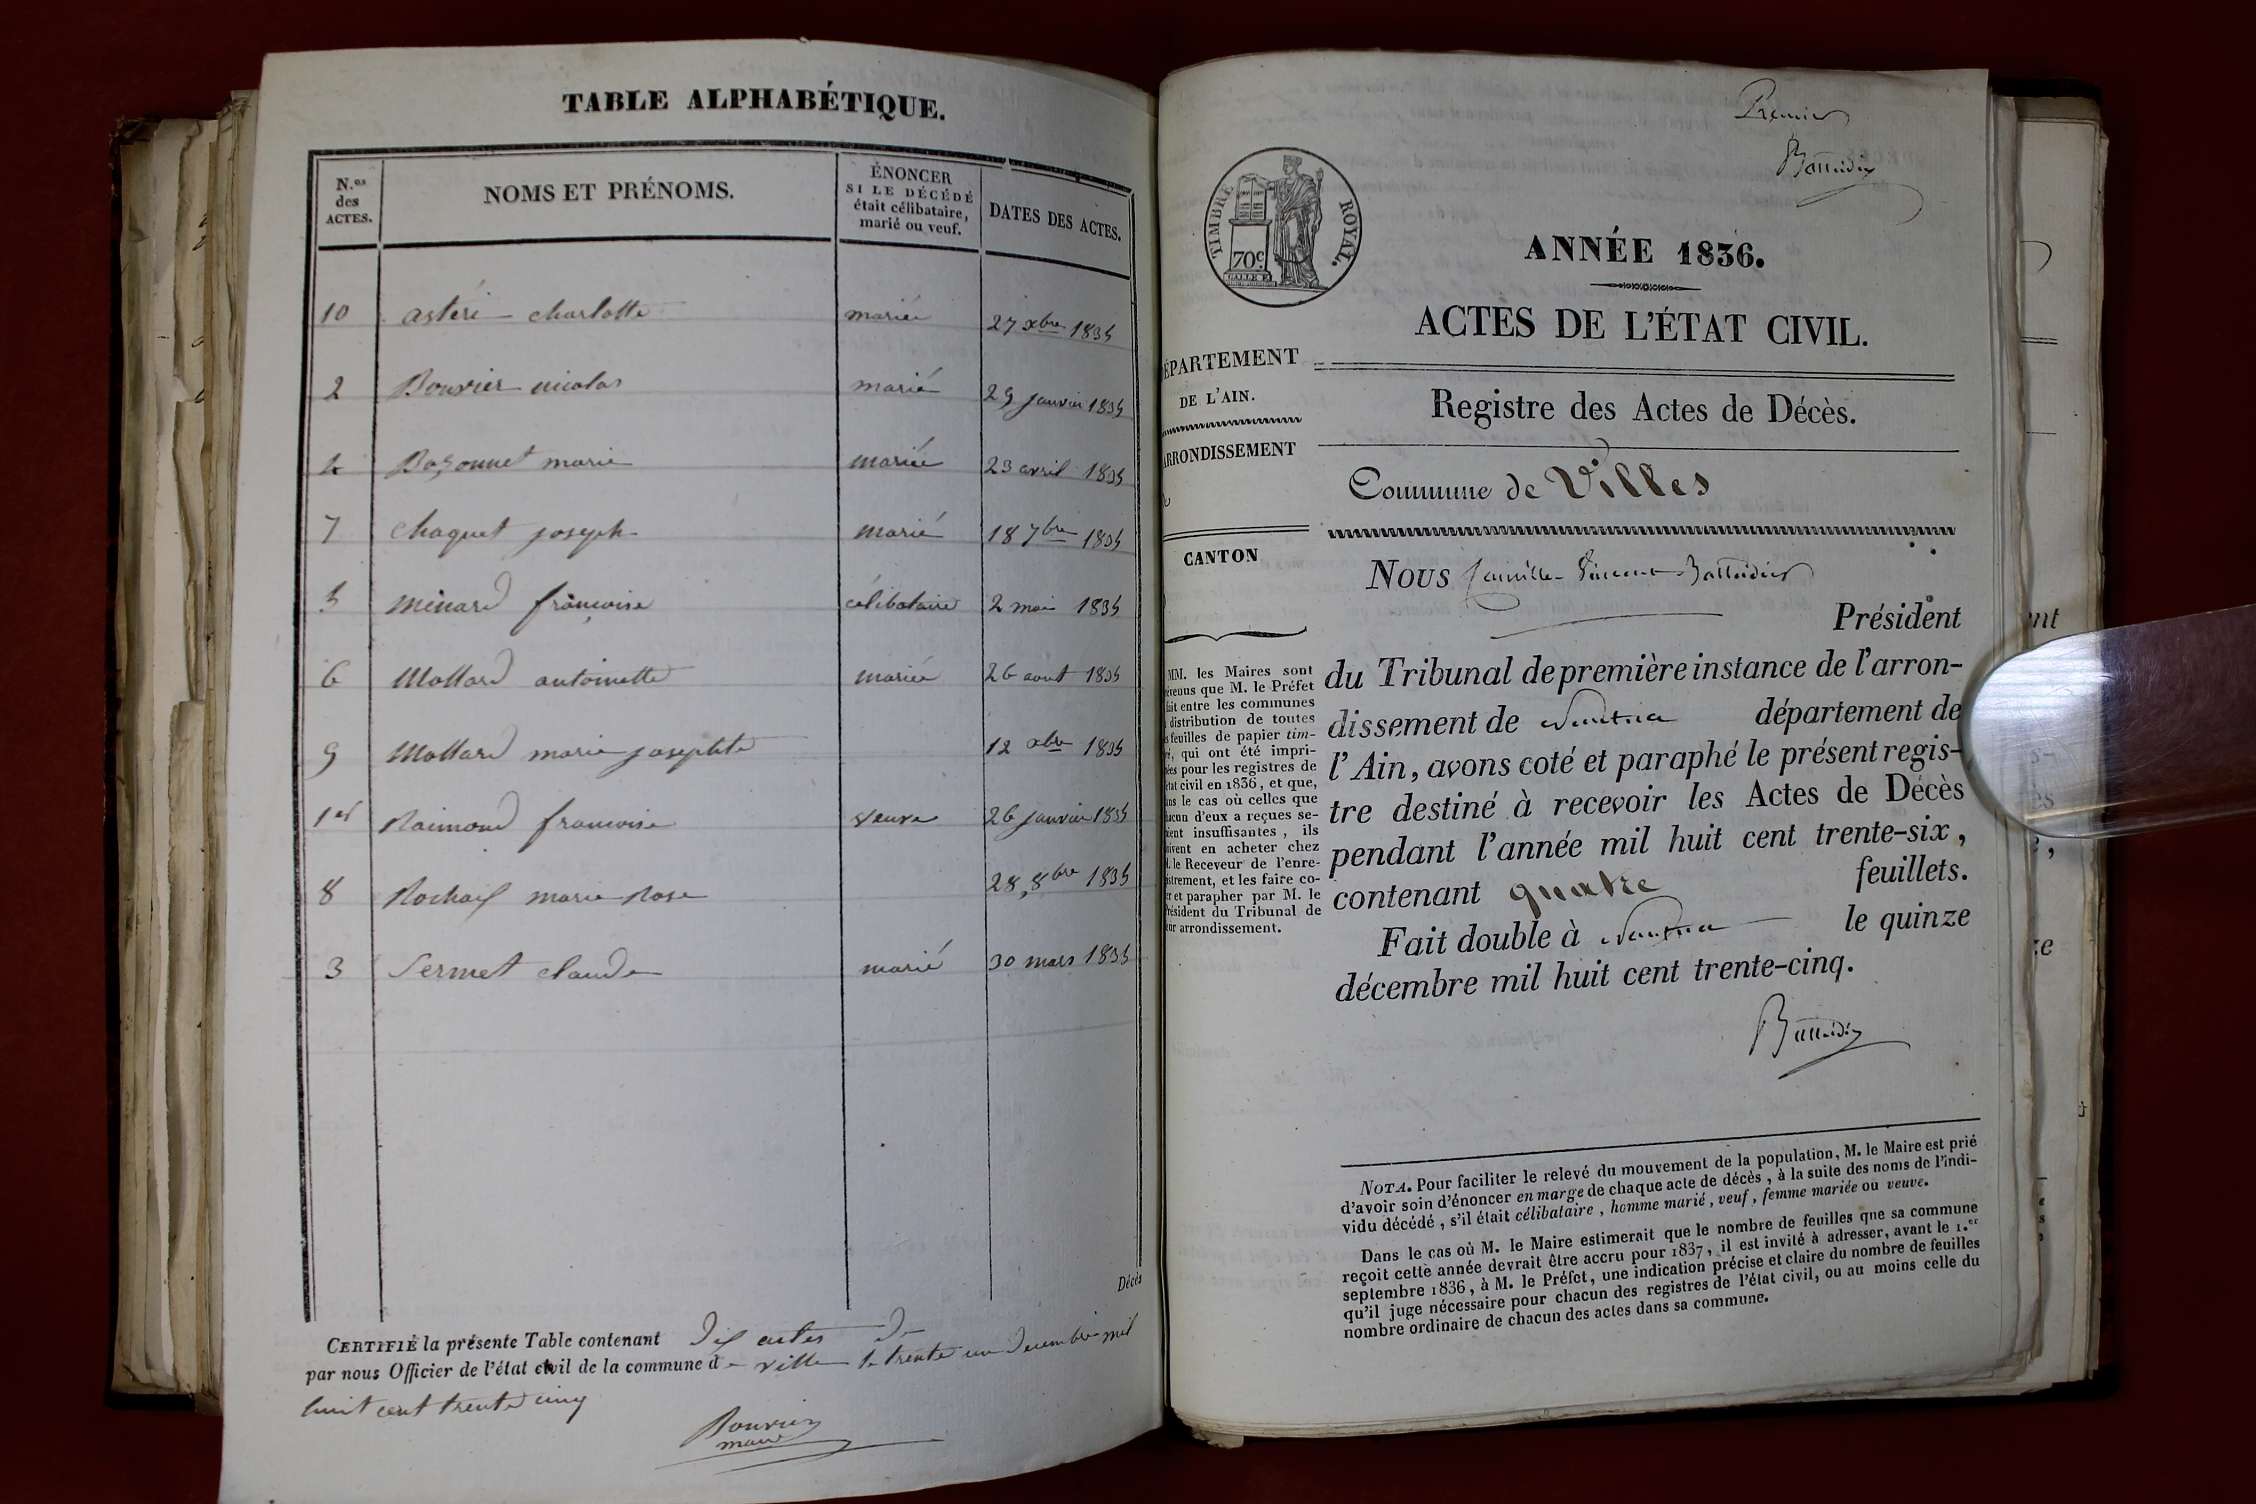 TABLE ALPHABÉTIQUE.
N.os des ACTES. NOMS ET PRÉNOMS. ÉNONCER SI LE DÉCÉDÉ était célibataire, marié ou veuf. DATES DES ACTES.
10 astéri charlotte mariée 27 xbre 1835
2 Bouvier nicolas marié 29 janvier 1835
4 Bozonnet marie mariée 23 avril 1835
7 chaquet joseph marié 18 7bre 1835
5 ménard françoise célibataire 2 mai 1835
6 Mollard antoinette mariée 26 aout 1835
9 Mollard marie josephte 12 xbre 1835
1er Raimond francoise veuve 26 janvier 1835
8 Rochaix marie Rose 28, 8bre 1835
3 Sermet claude marié 30 mars 1835
Décès
CERTIFIÉ la présente Table contenant dix actes de
par nous Officier de l'état civil de la commune de ville le trente un decembre mil
huit cent trente cinq
Bouvier
maire
Premier
Battudier
TIMBRE ROYAL.
70c
ANNÉE 1836.
ACTES DE L'ÉTAT CIVIL.
ÉPARTEMENT
DE L'AIN.
Registre des Actes de Décès.
ARRONDISSEMENT
Commune de Villes
CANTON
Nous Vincent Battudier
Président
du Tribunal de première instance de l'arron-
dissement de Nantua département de
l'Ain, avons coté et paraphé le présent regis-
tre destiné à recevoir les Actes de Décès
pendant l'année mil huit cent trente-six,
contenant quatre feuillets.
Fait double à Nantua le quinze
décembre mil huit cent trente-cinq.
Battudier
MM. les Maires sont
évenus que M. le Préfet
fait entre les communes
distribution de toutes
s feuilles de papier tim-
ré, qui ont été impri-
ées pour les registres de
état civil en 1836, et que,
ans le cas où celles que
hacun d'eux a reçues se-
aient insuffisantes, ils
oivent en acheter chez
M. le Receveur de l'enre-
istrement, et les faire co-
er et parapher par M. le
Président du Tribunal de
eur arrondissement.
NOTA. Pour faciliter le relevé du mouvement de la population, M. le Maire est prié
d'avoir soin d'énoncer en marge de chaque acte de décès, à la suite des noms de l'indi-
vidu décédé, s'il était célibataire, homme marié, veuf, femme mariée ou veuve.
Dans le cas où M. le Maire estimerait que le nombre de feuilles que sa commune
reçoit cette année devrait être accru pour 1837, il est invité à adresser, avant le 1.er
septembre 1836, à M. le Préfet, une indication précise et claire du nombre de feuilles
qu'il juge nécessaire pour chacun des registres de l'état civil, ou au moins celle du
nombre ordinaire de chacun des actes dans sa commune.